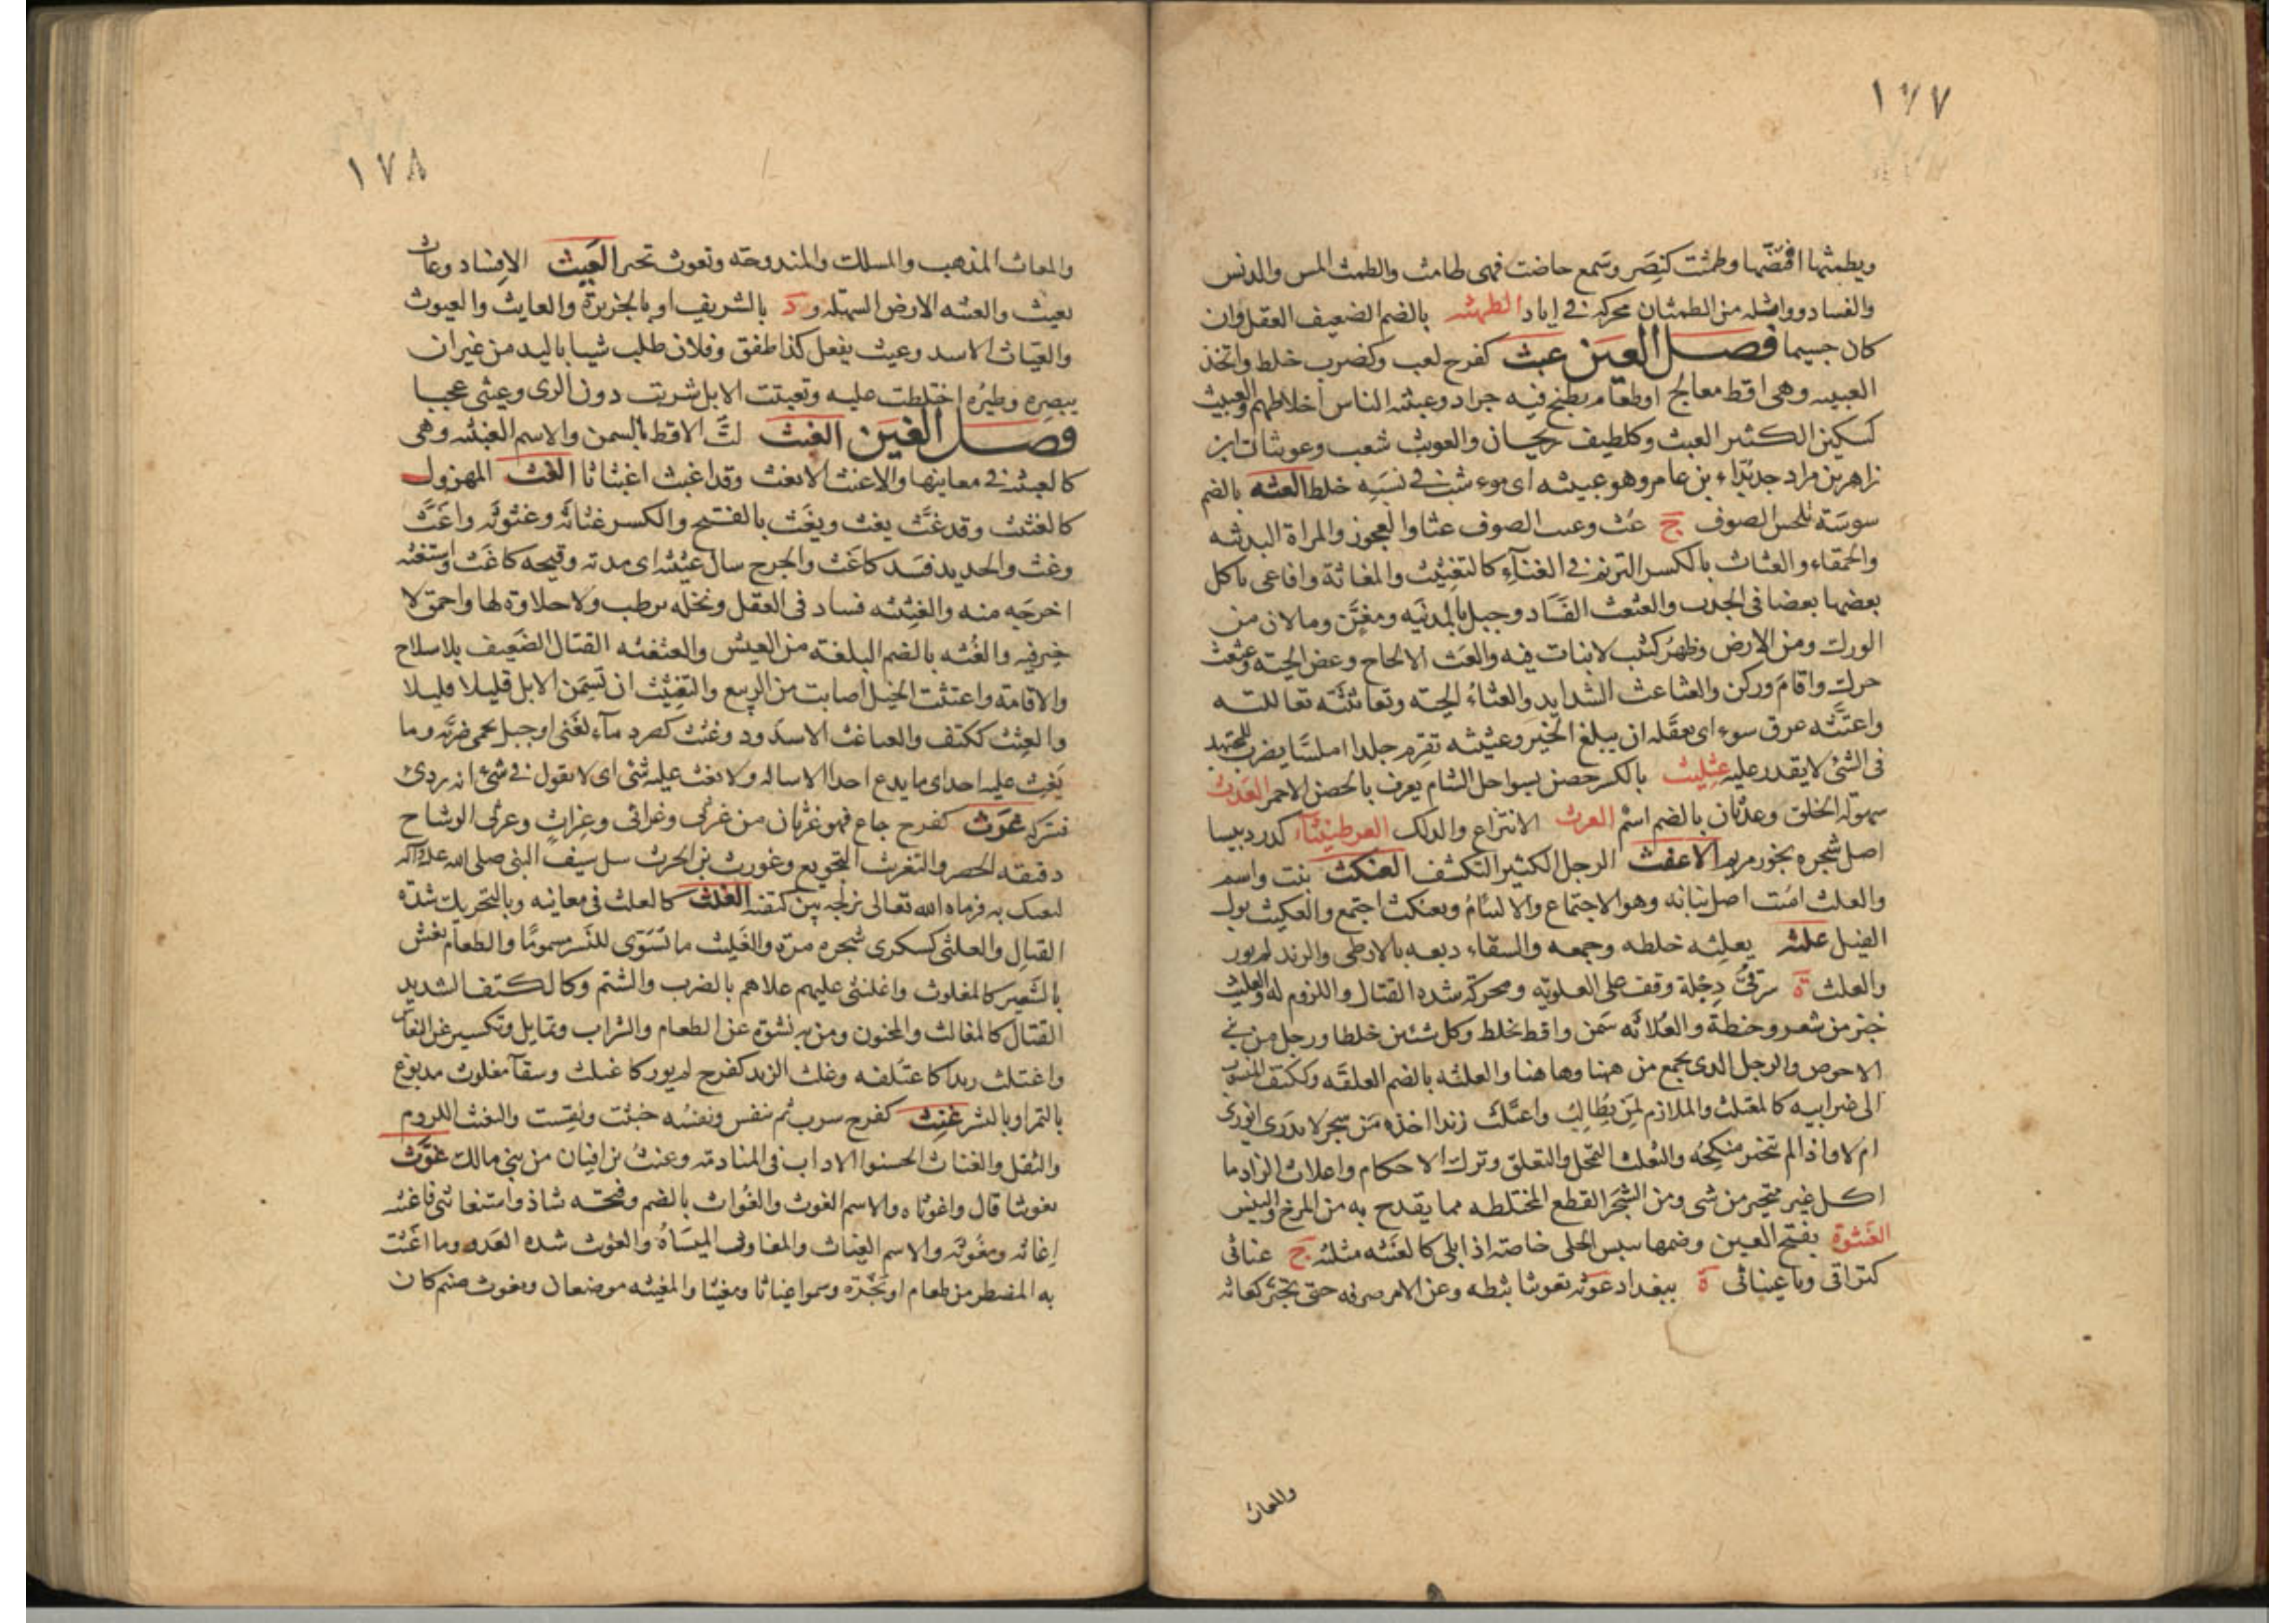 ١٧٧
ويطمثها افتضّها وطمثت كنصَر وسَمع حاضت فهى طامث والطمث المس والدنس
والفساد وواثله من الطمثان محركه فى اياد الطهثه بالضم الضعيف العقل وان
كان جسيما فصل العين عبث كفرح لعب وكضرب خلط واتخذ
العبيثه وهى اقط معالج او طعام يطبخ فيه جراد وعبيثه الناس اخلاطهم والعبيث
كسكين الكثير العبث وكلطيف ريحان والعوبث شعب وعوبثان ابن
زاهر بن مراد جد بدّاء بن عامر وهو عبيثه اى موءتشب فى نسَبِه خلط العثه بالضم
سوسَة تلحس الصوف ج عُث وعث الصوف عثا والعجوز والمراة البذيئه
والحمقاء والعثاث بالكسر الترنم فى الغنآء كالتغنيث والمغاثة وافاعى ياكل
بعضها بعضا فى الجدب والعثعث الفسَاد وجبل بالمدنيه ومغنٍّ وما لان من
الورك ومن الارض وظهرُ كثب لا نبات فيه والعَث الالحاح وعض الحيّه وعثعث
حرك واقامَ وركن والعثاعث الشدايد والعثاءُ الحيّه وتعاثثته تعاللته
واعتثّه عرق سوء اى تعقّله ان يبلغ الخير وعثيثه تقرِم جلدا املسَا يضرب للمجتهد
فى الشئ لا يقدر عليه عثليث بالكسر حصن بسواحل الشام يعرف بالحصن الاحمر العَدث
سهولة الخلق وعدثان بالضم اسْم العرث الانتزاع والدلك العرطنيثآء كدردبيسا
اصل شجره بخور مريم الاعفث الرجل الكثير التكشف العنكث بنت واسم
والعكث اميت اصل بنائه وهو الاجتماع والالتيام وتعنكث اجتمع والعكيث بول
الفيل علثه يعلِثه خلطه وجمعه والسقاء دبغه بالارطى والزند لم يور
والعلث ة شرقىّ دِجلة وقف على العلويّه ومحركه شده القتال واللزوم له والعليث
خبز من شعير وحنطة والعُلاثه سَمن واقط يخلط وكل شيئين خلطا ورجل من بنى
الاحوص والرجل الذى يجمع من ههنا وهاهنا والعلثه بالضم العلقه وككتف المنسوب
الى غير ابيه كالمعتلث والملازم لمن يُطَالِبُ واعتلث زندا اخذه من شجر لا يدرى ايورى
ام لا واذا لم يتخير منكحَه والتعلث التمحل والتعلق وترك الاحكام واعلاث الزاد ما
اكل غير متخير من شى ومن الشجَر القطع المختلطه مما يقدح به من المرخ واليبس
العَنثوة بفتح العين وضمها يبيس الحلى خاصّه اذا بلى كالعَنثه مثلثه ج عناثى
كتراقى وبا عيناثى ة ببغداد عوّثه تعويثا ثبطه وعن الامر صرفه حتى تحيّر كعاثه
والمعاث
١٧٨
والمعاث المذهب والمسلك والمندوحه وتعوث تحير العَيث الافساد وعاث
يعيث والعيثه الارض السهله ود بالشريف او بالجزيرة والعايث والعيوث
والعيّاث الاسد وعيث يفعل كذا طفق وفلان طلب شيا باليد من غير ان
يبصره وطيرُه اختلطت عليه وتعيثت الابل شربت دون الرى وعيثى عجبا
فصل الغين الغبث لتّ الاقط بالسمن والاسم الغبيثه وهى
كالعبيثه فى معانيها والاغبث الابغث وقد اغبث اغبثاثا الغث المهزول
كالغثيث وقد غثَّ يغث ويغَث بالفتح والكسر غثاثَه وغثوثَه واغَثَّ
وغث والحديد فسَد كاغث والجرح سال غثيثه اى مدته وقيحه كاغَث واستغثه
اخرجَه منه والغثيثه فساد فى العقل ونخله ترطب ولا حلاوة لها واحمق لا
خير فيه والغُثه بالضم البلغة من العيش والغثغثه القتال الضعيف بلا سلاح
والاقامَة واغتثت الخيل اصابت من الربيع والتغثيث ان تسِمَن الابل قليلا قليلا
والغثِث ككتف والغثاغث الاسَد وذ وغثث كصرد مآء لغنى او جبل بحمى ضريّه وما
يَغِث عليه احد اى ما يدع احدا الا ساله ولا يغث عليه شئ اى لا يقول فى شئ انه ردئ
فيتركه غَرِث كفرح جاع فهو غرثان من غرثى وغراثى وغراث وغرثى الوشاح
دقيقه الخصر والتغريث التجويع وغورث بن الحرث سل سيف النبى صلى الله عليه وآله
ليفتك به فرماه الله تعالى بزلجه بين كتفيه الغلث كالعلث فى معانيه وبالتحريك شدّة
القتال والغلثى كسكرى شجره مرّة والغليث ما يُسَوّى للنسر مسموما والطعام يغش
بالشعير كالمغلوث واغلنثى عليهم علاهم بالضرب والشتم وككتف الشديد
القتال كالمغالث والمجنون ومن به نشوة عن الطعام والشراب وتمايل وتكسير عن النعاس
واغتلث زندا كاعتَلثه وغلث الزند كفرح لم يور كاغلث وسقآ مغلوث مدبوغ
بالتمر او بالبسر غنِث كفرح شرب ثم تنفس ونفسُه خبثت ولَقِست والتغنث اللزوم
والثقل والغناث الحسنوا الاداب فى المنادمه وغنث بن افيان من بنى مالك غوّث
تغويثا قال واغوثاه والاسم الغوث والغُواث بالضم وفتحه شاذ واستغاثنى فاغثته
اِغاثه ومغُوثَه والاسم الغياث والمغاوث الميَاهُ والغوث شده العَدو وما اغثت
به المضطر من طعام او نجْدة وسموا غياثا ومغيثا والمغيثه موضعان ويغوث صنم كان